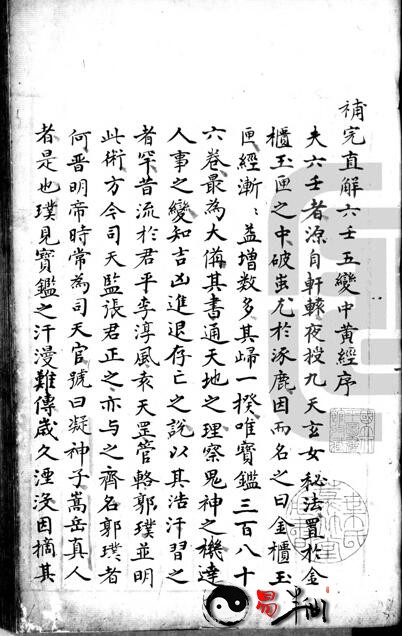 補完直解六壬五變中黃經序
夫六壬者源自軒轅夜授九天玄女秘法置於金
櫃玉匣之中破蚩尤於涿鹿因而名之曰金櫃玉
匣經漸〻益增數多其歸一揆唯寶鑑三百八十
六卷最為大備其書通天地之理察鬼神之機達
人事之變知吉凶進退存亡之說以其浩汗習之
者罕昔流於君平李淳風袁天罡管輅郭璞並明
此術方今司天監張君正之亦与之齊名郭璞者
何晋明帝時常為司天官號曰凝神子嵩岳真人
者是也璞見寶鑑之汗漫難傳歲久湮没因摘其
易